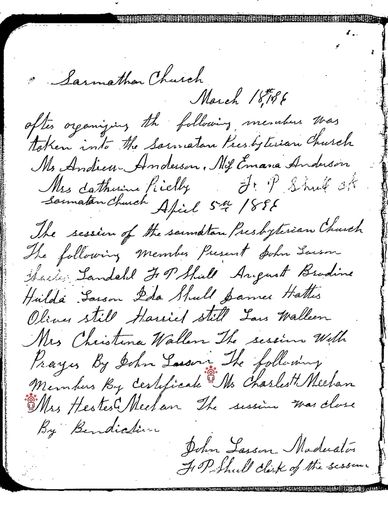 Sarmathan Church
March 18th, 1886
after organizing the following members was
taken into the Sarmatan Presbyterian Church
Mr Andrew Anderson, Mrs Emana Anderson
Mrs Catherine F P Shull
Sarmatan Church April 5th 1886
The session of the sarmatan Presbyterian Church
The following member Present John Larson
Landahl F P Shull August Brodine
Hulda Larson Ida Shull James Hattis
Oliver still Harried still Lars Walleen
Mrs Christena Wallen The session With
Prayer By John Larson The following
members By certificate Mr Charles H Meehan
Mrs Hester C Meehan The session was close
By Benediction
John Larson Moderator
F P Shull clerk of the session